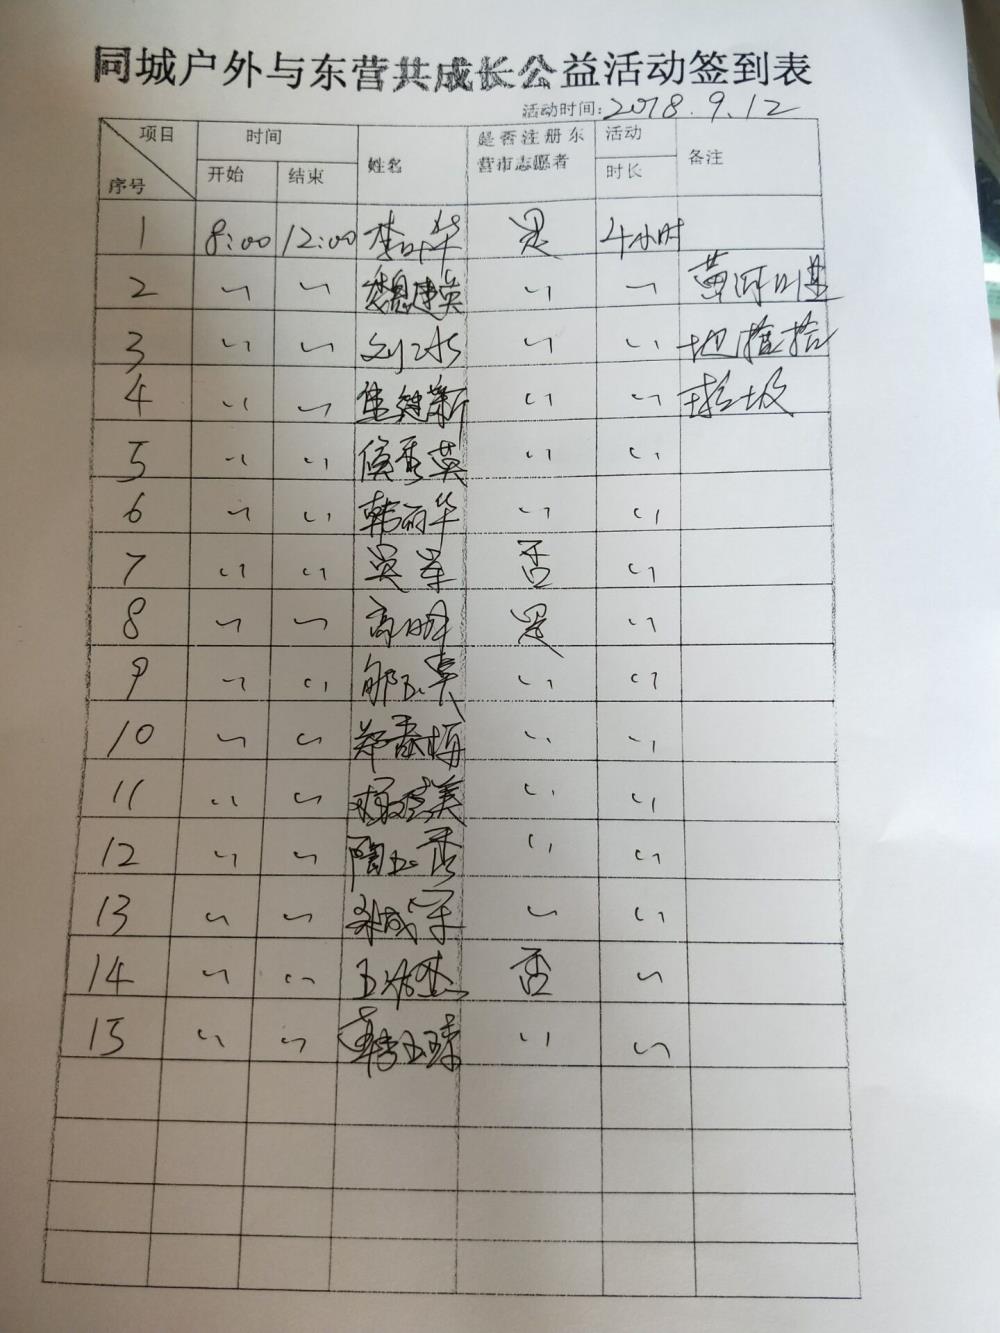 同城户外与东营共成长公益活动签到表
活动时间: 2018.9.12
项目 序号 时间 开始 结束 姓名 是否注册东营市志愿者 活动时长 备注
1 8:00 12:00 李 华 是 4小时
2 〃 〃 魏建英 〃 〃 黄河口湿
3 〃 〃 刘 〃 〃 地捡拾
4 〃 〃 焦建新 〃 〃 垃圾
5 〃 〃 侯秀英 〃 〃
6 〃 〃 韩丽华 〃 〃
7 〃 〃 吴军 否 〃
8 〃 〃 高 是 〃
9 〃 〃 〃 〃
10 〃 〃 郑春梅 〃 〃
11 〃 〃 美 〃 〃
12 〃 〃 陶玉香 〃 〃
13 〃 〃 成军 〃 〃
14 〃 〃 王 杰 否 〃
15 〃 〃 韩玉珠 〃 〃